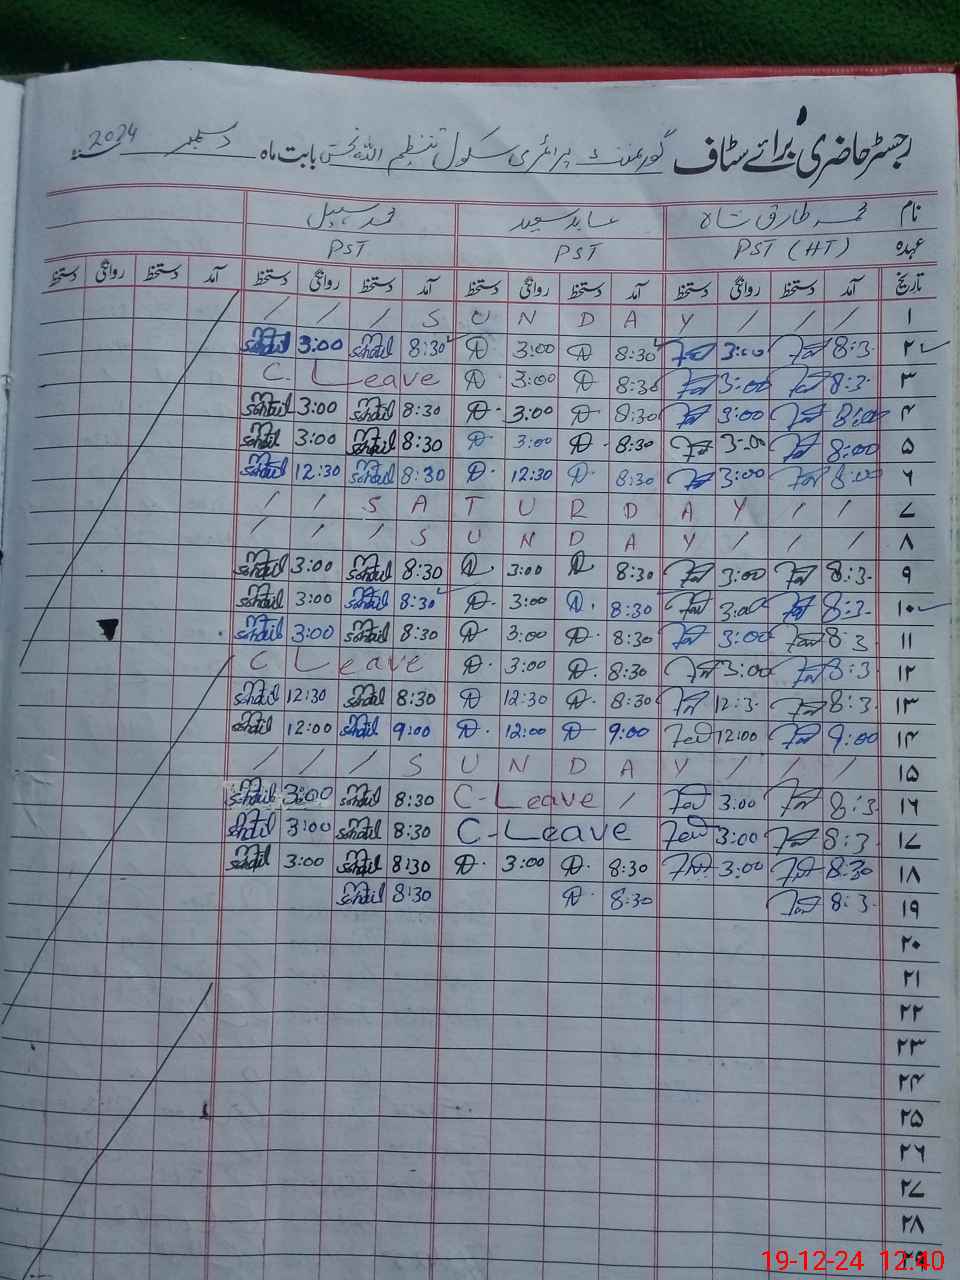 رجسٹر حاضری برائے سٹاف گورنمنٹ پرائمری سکول تنظیم اللہ بخش بابت ماہ دسمبر 2024
نام محمد طارق شاہ عابد سعید محمد سہیل
عہدہ PST (HT) PST PST
تاریخ آمد دستخط روانگی دستخط آمد دستخط روانگی دستخط آمد دستخط روانگی دستخط آمد دستخط روانگی دستخط
۱ / / / S U N D A Y / / /
۲ 8:3 3:00 8:30 3:00 8:30 Sohail 3:00 Sohail
۳ 8:3 3:00 8:30 3:00 C. Leave
۴ 8:00 3:00 8:30 3:00 8:30 Sohail 3:00 Sohail
۵ 8:00 3:00 8:30 3:00 8:30 Sohail 3:00 Sohail
۶ 8:00 3:00 8:30 12:30 8:30 Sohail 12:30 Sohail
۷ / / S A T U R D A Y / /
۸ / / / S U N D A Y / / /
۹ 8:3 3:00 8:30 3:00 8:30 Sohail 3:00 Sohail
۱۰ 8:3 3:00 8:30 3:00 8:30 Sohail 3:00 Sohail
۱۱ 8:3 3:00 8:30 3:00 8:30 Sohail 3:00 Sohail
۱۲ 8:3 3:00 8:30 3:00 C Leave
۱۳ 8:3 12:3 8:30 12:30 8:30 Sohail 12:30 Sohail
۱۴ 9:00 12:00 9:00 12:00 9:00 Sohail 12:00 Sohail
۱۵ / / / S U N D A Y / / /
۱۶ 8:3 3:00 C-Leave / 8:30 Sohail 3:00 Sohail
۱۷ 8:3 3:00 C-Leave 8:30 Sohail 3:00 Sohail
۱۸ 8:30 3:00 8:30 3:00 8:30 Sohail 3:00 Sohail
۱۹ 8:3 8:30 8:30 Sohail
۲۰
۲۱
۲۲
۲۳
۲۴
۲۵
۲۶
۲۷
۲۸
۲۹
19-12-24 12:40